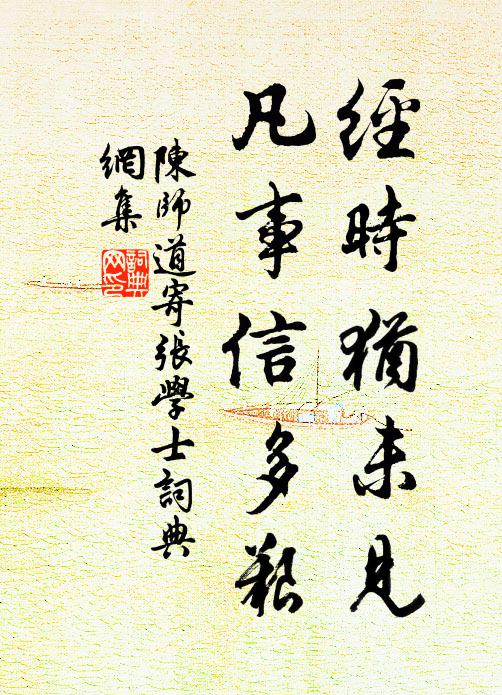 經時猶未見
凡事信多艱
陳師道寄張學士詞典
網集
詞典
网印